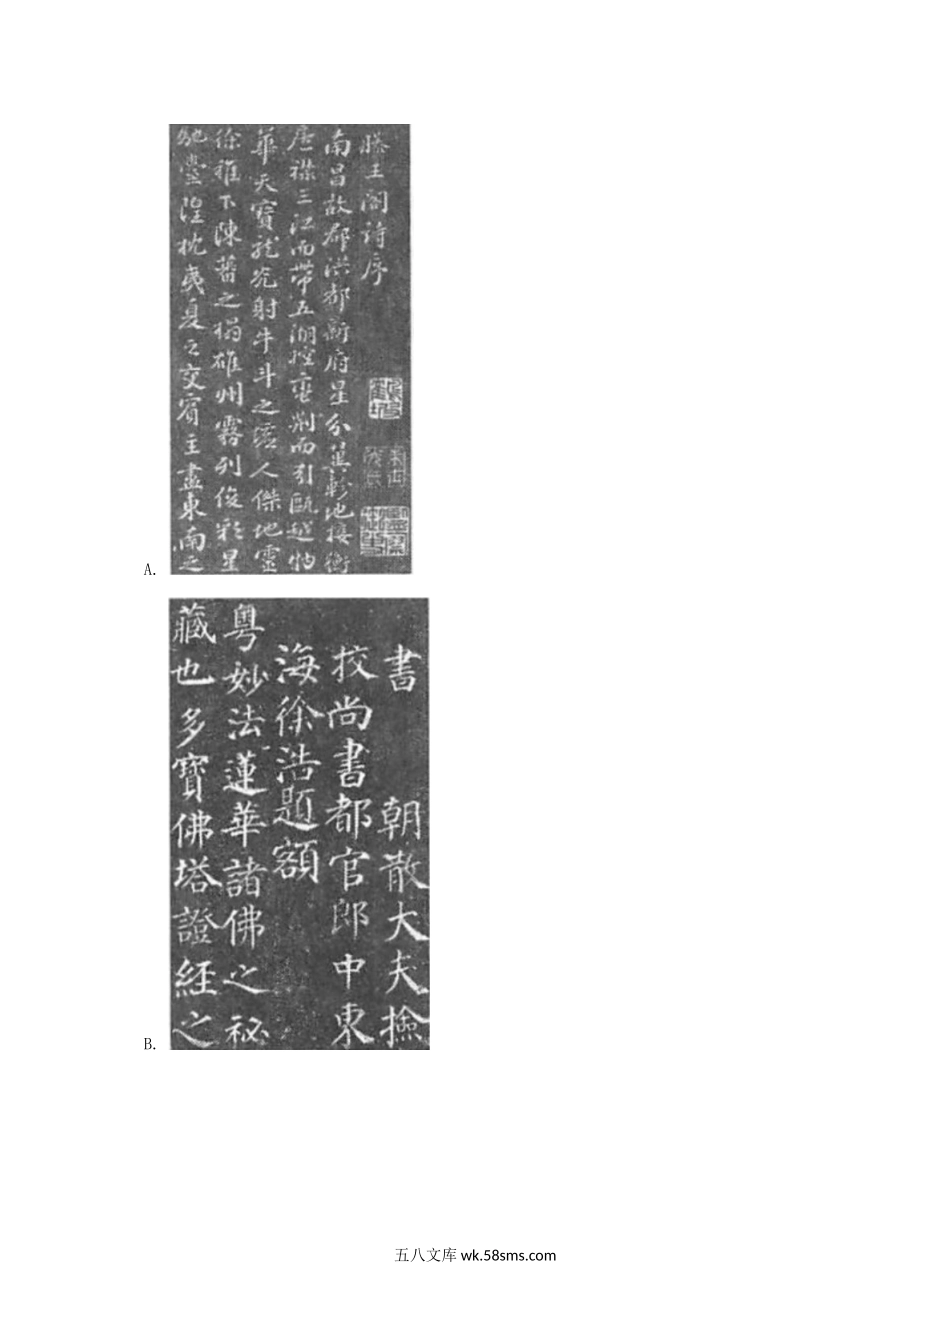 滕王閣詩序
南昌故郡洪都新府星分翼軫地接衡
廬襟三江而帶五湖控蠻荆而引甌越物
華天寶龍光射牛斗之墟人傑地靈
徐稚下陳蕃之榻雄州霧列俊彩星
馳臺隍枕夷夏之交賓主盡東南之
A.
書 朝散大夫撿
挍尚書都官郎中東
海徐浩題額
粤妙法蓮華諸佛之祕
藏也多寶佛塔證經之
B.
五八文库wk.58sms.com